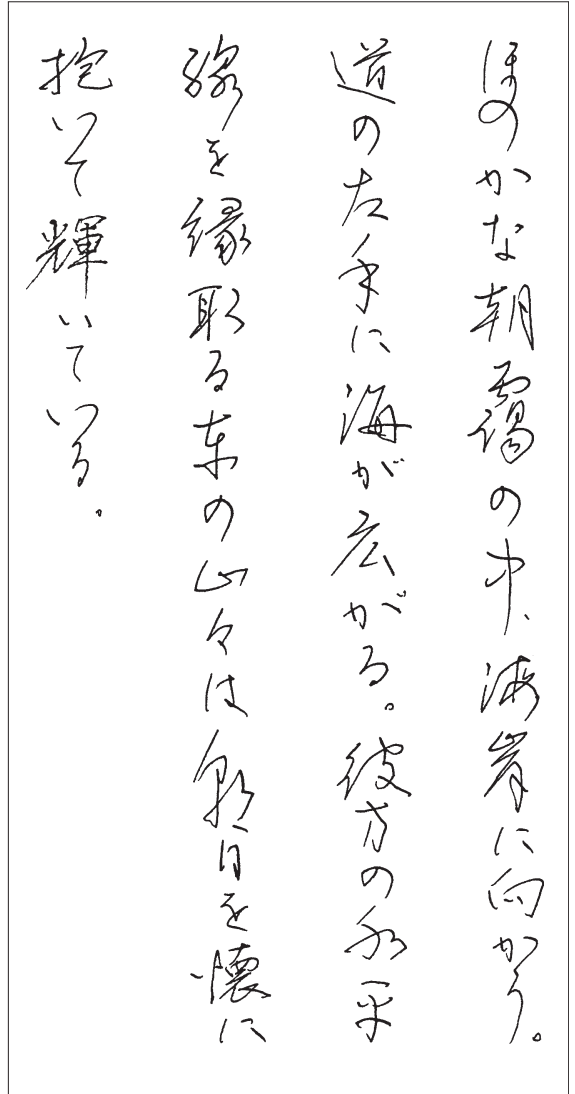 ほのかな朝靄の中、海岸に向かう。
道の左手に海が広がる。彼方の水平
線を縁取る東の山々は朝日を懐に
抱いて輝いている。